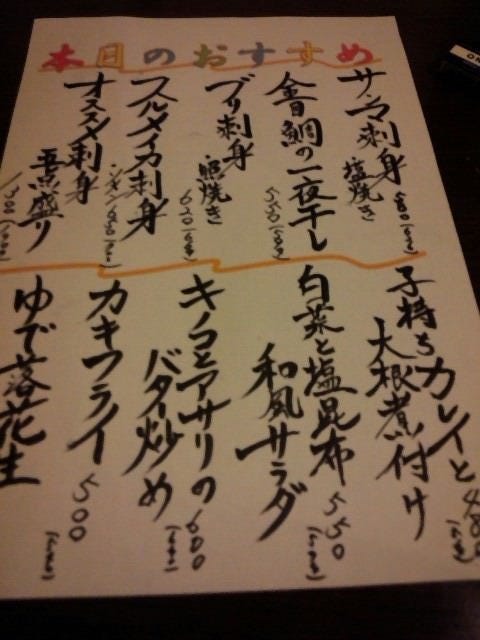 本日のおすすめ
サンマ刺身
塩焼き
金目鯛の一夜干し
550
ブリ刺身
照焼き
620
スルメイカ刺身
オススメ刺身
五点盛り
子持ちカレイと
大根煮付け
480
白菜と塩昆布
和風サラダ
550
キノコとアサリの
バター炒め
600
カキフライ
500
ゆで落花生